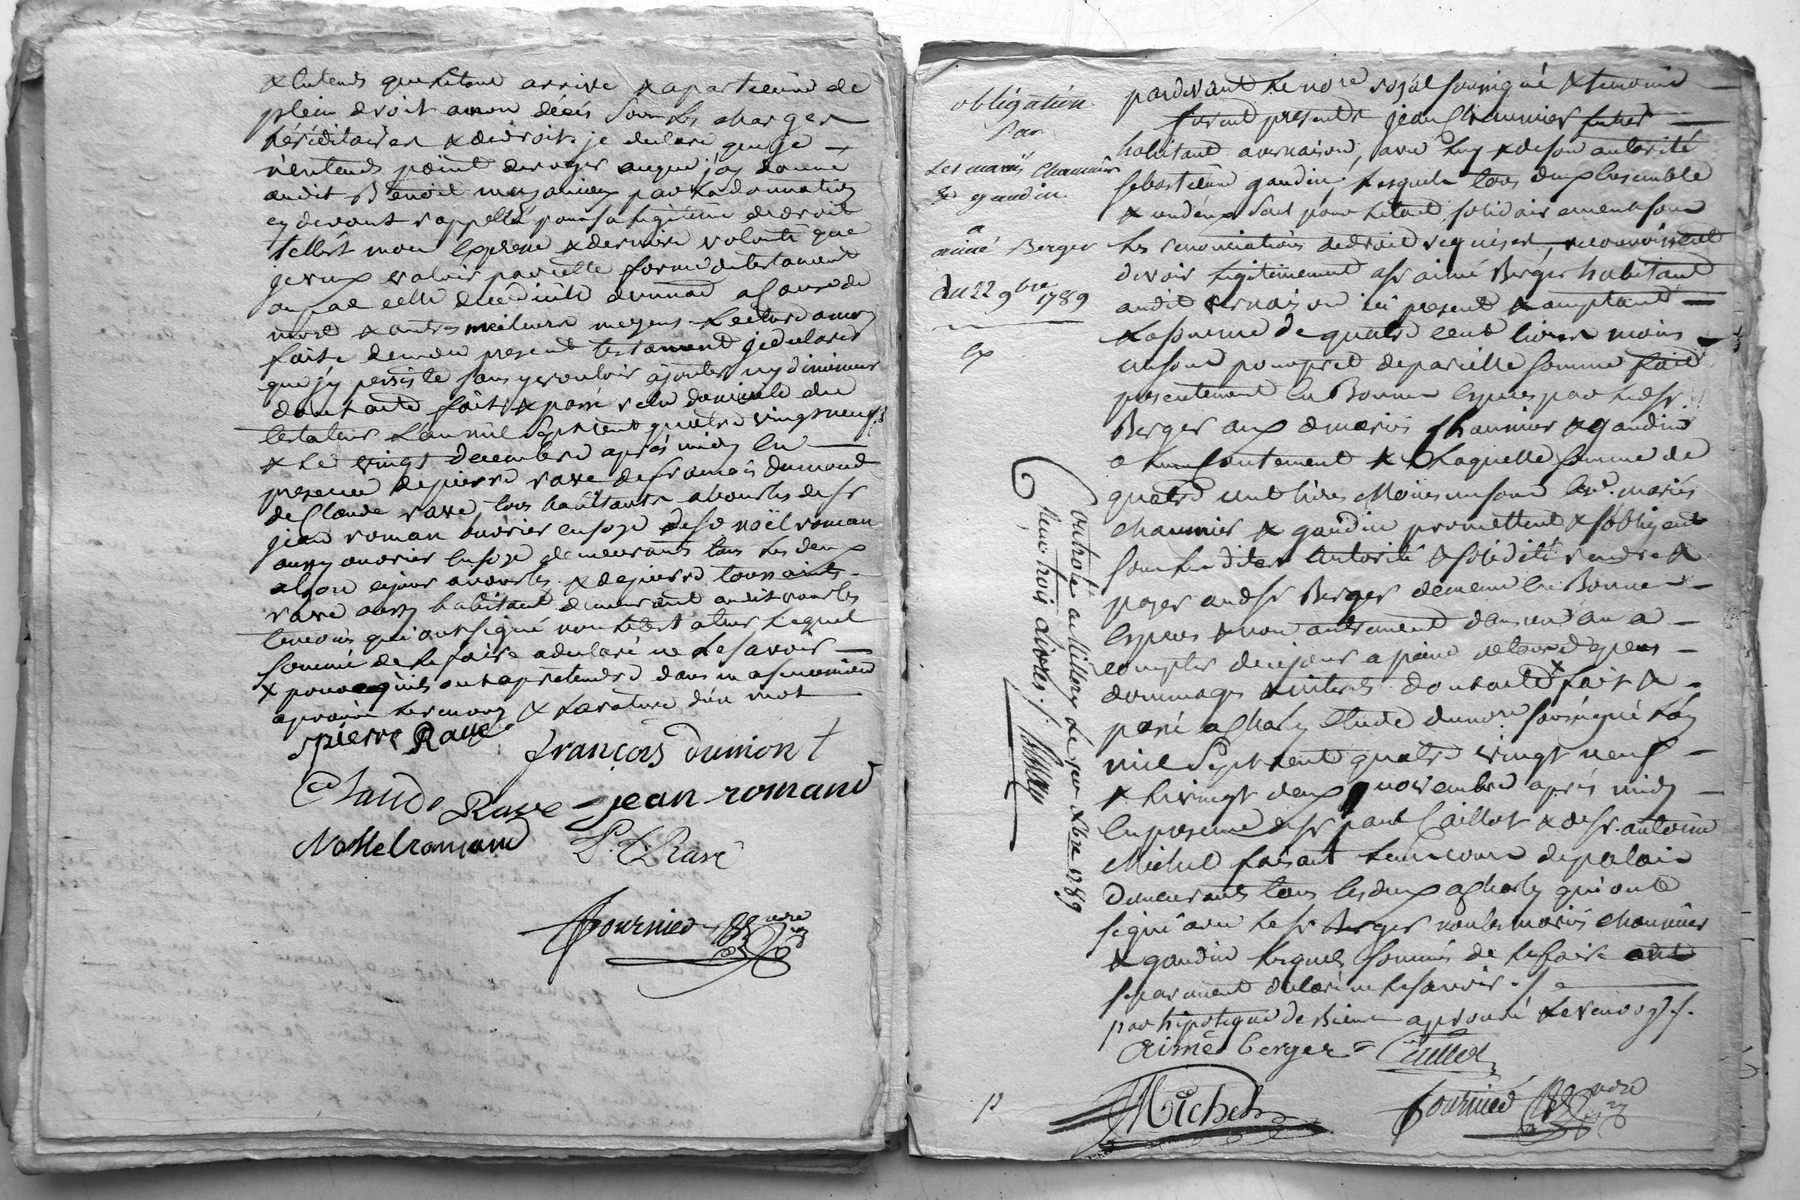 & entends quelitout arrive & apartienne de
plein droit amon décés sous les charges
héréditaires & de droit, je declare que je
n'entends point deroger auque j'ay donné
audit Benoit mon par la donnation
cy devant rappellé pour sa legitime de droit
telle est mon expresse & derniere volonté que
je veux valoir par cette forme de testament
ou par celle de codicille donnation a cause de
mort & autres meilleurs moyens. Lecture amoy
faite de mon present testament je declare
que j'y persiste sans y vouloir ajouter ny diminuer
dont acte fait & passé domicile du
testateur l'an mil sept cent quatre vingt neuf
& le vingt decembre après midy en
presence de pierre rave de françois dumond
de Claude rave, tous habitants de sr
jean roman ouvrier en soye de sr noël roman
aussy ouvrier en soye demeurants tous les deux
a & de pierre toussaints
rave aussy habitant demeurant audit
temoins qui ont signé non le testateur lequel
sommé de le faire a declaré ne le savoir
& pour ce qu'ils ont a pretendre dans ma succession
aprouvé le renvoy & la rature d'un mot
pierre Rave françois dumont
Claude Rave = jean romand
Noelle romand P. T. Rave
fournier nore
obligation
par
Les mariés Chaumier
& gaudin
a
aimé Berger
du 22 9bre 1789
ex
pardevant le nore royal soussigné & temoins
furent presents jean Chaumier
habitant avernaison, avec luy & de son autorité
sebastienne gaudin, lesquels tous deux ensemble
& un deux seul pour le tout solidairement sous
les renonciations de droit requises, reconnoissent
devoir legitimement a sr aimé Berger habitant
audit vernaison icy present & acceptant
la somme de quatre cent livres moins
un sou pour pret de pareille somme fait
presentement en Bonnes especes par ledsr
Berger aux d mariés chaumier & gaudin
a leur contentement & laquelle somme de
quatre cent livres Moins un sou lesd. mariés
chaumier & gaudin promettent & s'obligent
sous lesdites autorité & solidité rendre &
payer audsr Berger dememe en Bonnes
especes & non autrement dans un an a
compter de cejour a peine de tous depens
dommages & interets dont acte fait &
passé a Charly etude dunore soussigné l'an
mil sept cent quatre vingt neuf
& le vingt deux novembre après midy
en presence de sr paul Caillot & de sr. antoine
Michel faisant leur cours depalais
demeurants tous les deux a Charly qui ont
signé avec le sr Berger non les mariés chaumier
& gaudin lesquels sommés de le faire ont
separement declaré ne le savoir
par hipoteque de Biens aprouvé le renvoy
Aimé berger = Caillot
Michel fournier nore
Controlé a Millery le 1789
Reçu trois livres